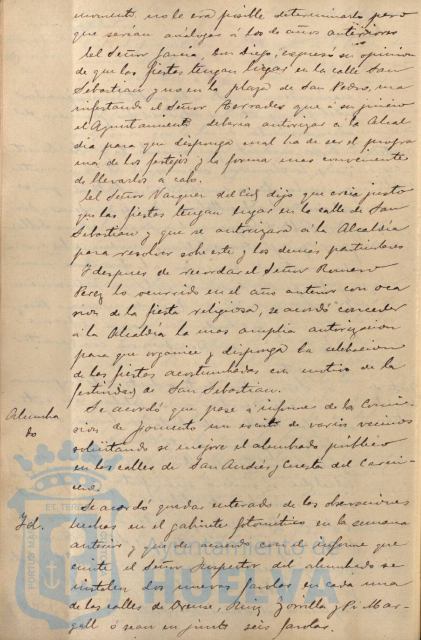 momento no le era posible determinarlo pero
que serían análogos á los de años anteriores
El Señor García, Don Diego, expresó su opinión
de que las fiestas tengan lugar en la calle San
Sebastian y no en la plaza de San Pedro, ma
nifestando el Señor Terrades que á su juicio
el Ayuntamiento debería autorizar á la Alcal
día para que disponga cual ha de ser el progra
ma de los festejos y la forma mas conveniente
de llevarlos á cabo.
El Señor Vazquez del Cid dijo que creía justo
que las fiestas tengan lugar en la calle de San
Sebastian y que se autorizara á la Alcaldía
para resolver sobre este y los demás particulares
Y despues de recordar el Señor Romero
Perez lo ocurrido en el año anterior con oca
sion de la fiesta religiosa, se acordó conceder
á la Alcaldía la mas amplia autorizacion
para que organice y disponga la celebracion
de las fiestas acostumbradas con motivo de la
festividad de San Sebastian.
Alumbra
do
Se acordó que pase á informe de la Comi
sion de Fomento un escrito de varios vecinos
solicitando se mejore el alumbrado público
en las calles de San Andrés y Cuesta del Carni
cero.
Id.
Se acordó quedar enterado de las observaciones
hechas en el gabinete fotométrico en la semana
anterior y que de acuerdo con el informe que
emite el Señor Inspector del alumbrado se
instalen dos nuevas farolas en cada una
de las calles de Orense, Ruiz Zorrilla y Pi Mar
gall ó sean en junto seis farolas.
Ayuntamiento de
HUELVA